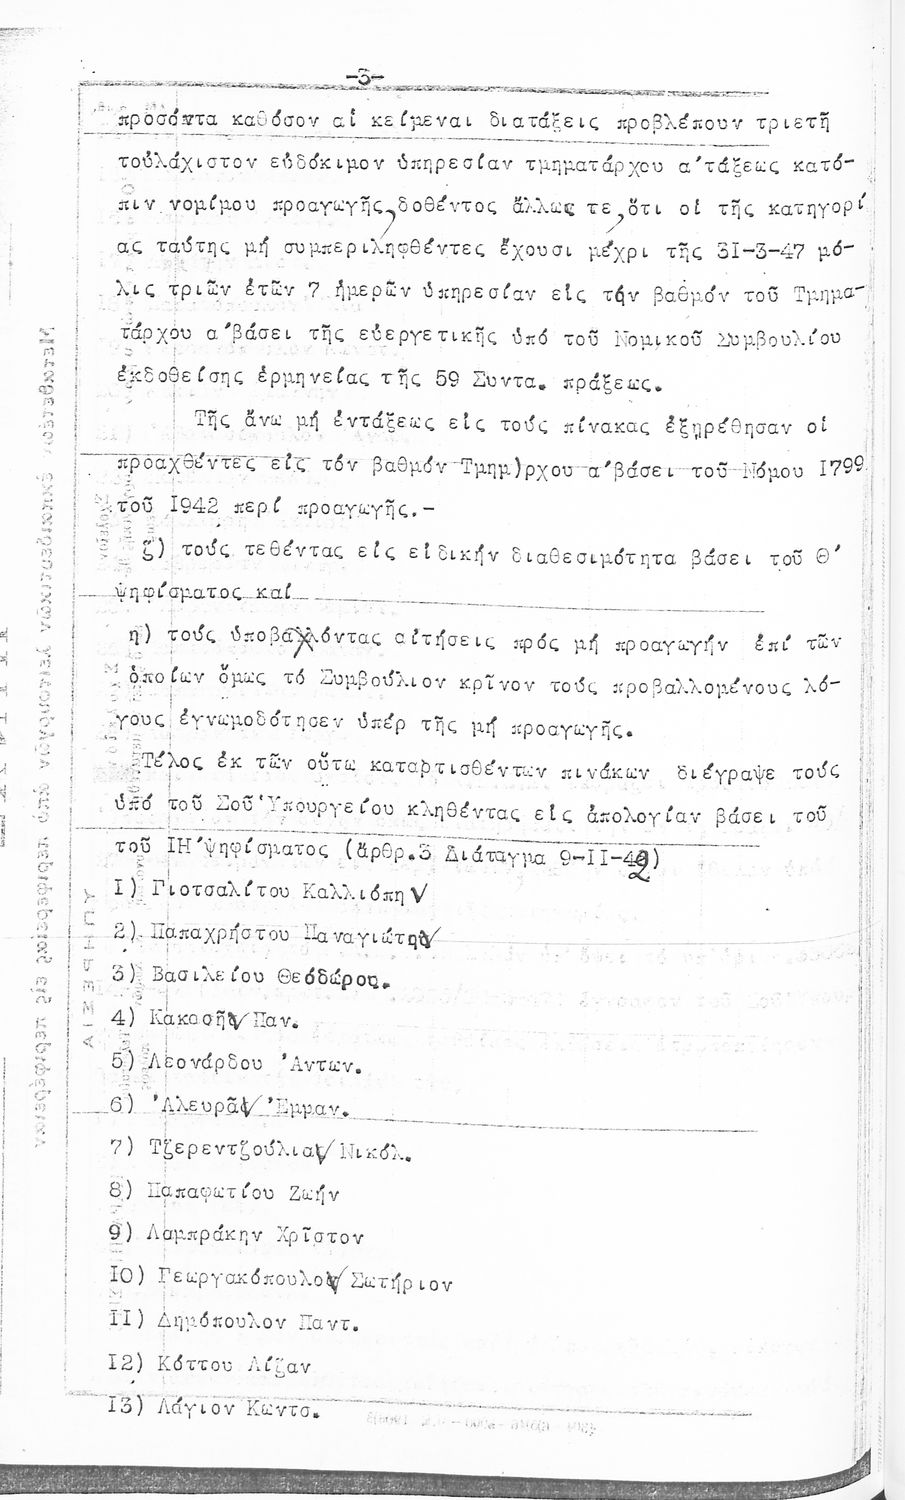 -3-
προσόντα καθόσον αἱ κείμεναι διατάξεις προβλέπουν τριετῆ
τοὐλάχιστον εὐδόκιμον ὑπηρεσίαν τμηματάρχου α'τάξεως κατό-
πιν νομίμου προαγωγῆς, δοθέντος ἄλλως τε, ὅτι οἱ τῆς κατηγορί
ας ταύτης μή συμπεριληφθέντες ἔχουσι μέχρι τῆς 3I-3-47 μό-
λις τριῶν ἐτῶν 7 ἡμερῶν ὑπηρεσίαν εἰς τόν βαθμόν τοῦ Τμημα-
τάρχου α'βάσει τῆς εὐεργετικῆς ὑπό τοῦ Νομικοῦ Συμβουλίου
ἐκδοθείσης ἑρμηνείας τῆς 59 Συντα. πράξεως.
Τῆς ἄνω μή ἐντάξεως εἰς τούς πίνακας ἐξῃρέθησαν οἱ
προαχθέντες εἰς τόν βαθμόν Τμημ)ρχου α'βάσει τοῦ Νόμου I799
τοῦ I942 περί προαγωγῆς.-
ζ) τούς τεθέντας εἰς εἰδικήν διαθεσιμότητα βάσει τοῦ Θ'
ψηφίσματος καί
η) τούς ὑποβαλόντας αἰτήσεις πρός μή προαγωγήν ἐπί τῶν
ὁποίων ὅμως τό Συμβούλιον κρῖνον τούς προβαλλομένους λό-
γους ἐγνωμοδότησεν ὑπέρ τῆς μή προαγωγῆς.
Τέλος ἐκ τῶν οὕτω καταρτισθέντων πινάκων διέγραψε τούς
ὑπό τοῦ Σοῦ Ὑπουργείου κληθέντας εἰς ἀπολογίαν βάσει τοῦ
τοῦ ΙΗ'ψηφίσματος (ἄρθρ.3 Διάταγμα 9-II-42)
I) Γιοτσαλίτου Καλλιόπη ν
2) Παπαχρήστου Παναγιώτην
3) Βασιλείου Θεόδωρον.
4) Κακοσῆν Παν.
5) Λεονάρδου Ἀντων.
6) Ἀλευρᾶν Ἐμμαν.
7) Τζερεντζούλιαν Νικόλ.
8) Παπαφωτίου Ζωήν
9) Λαμπράκην Χρῖστον
IO) Γεωργακόπουλον Σωτήριον
II) Δημόπουλον Παντ.
I2) Κόττου Λίζαν
I3) Λάγιον Κωντσ.